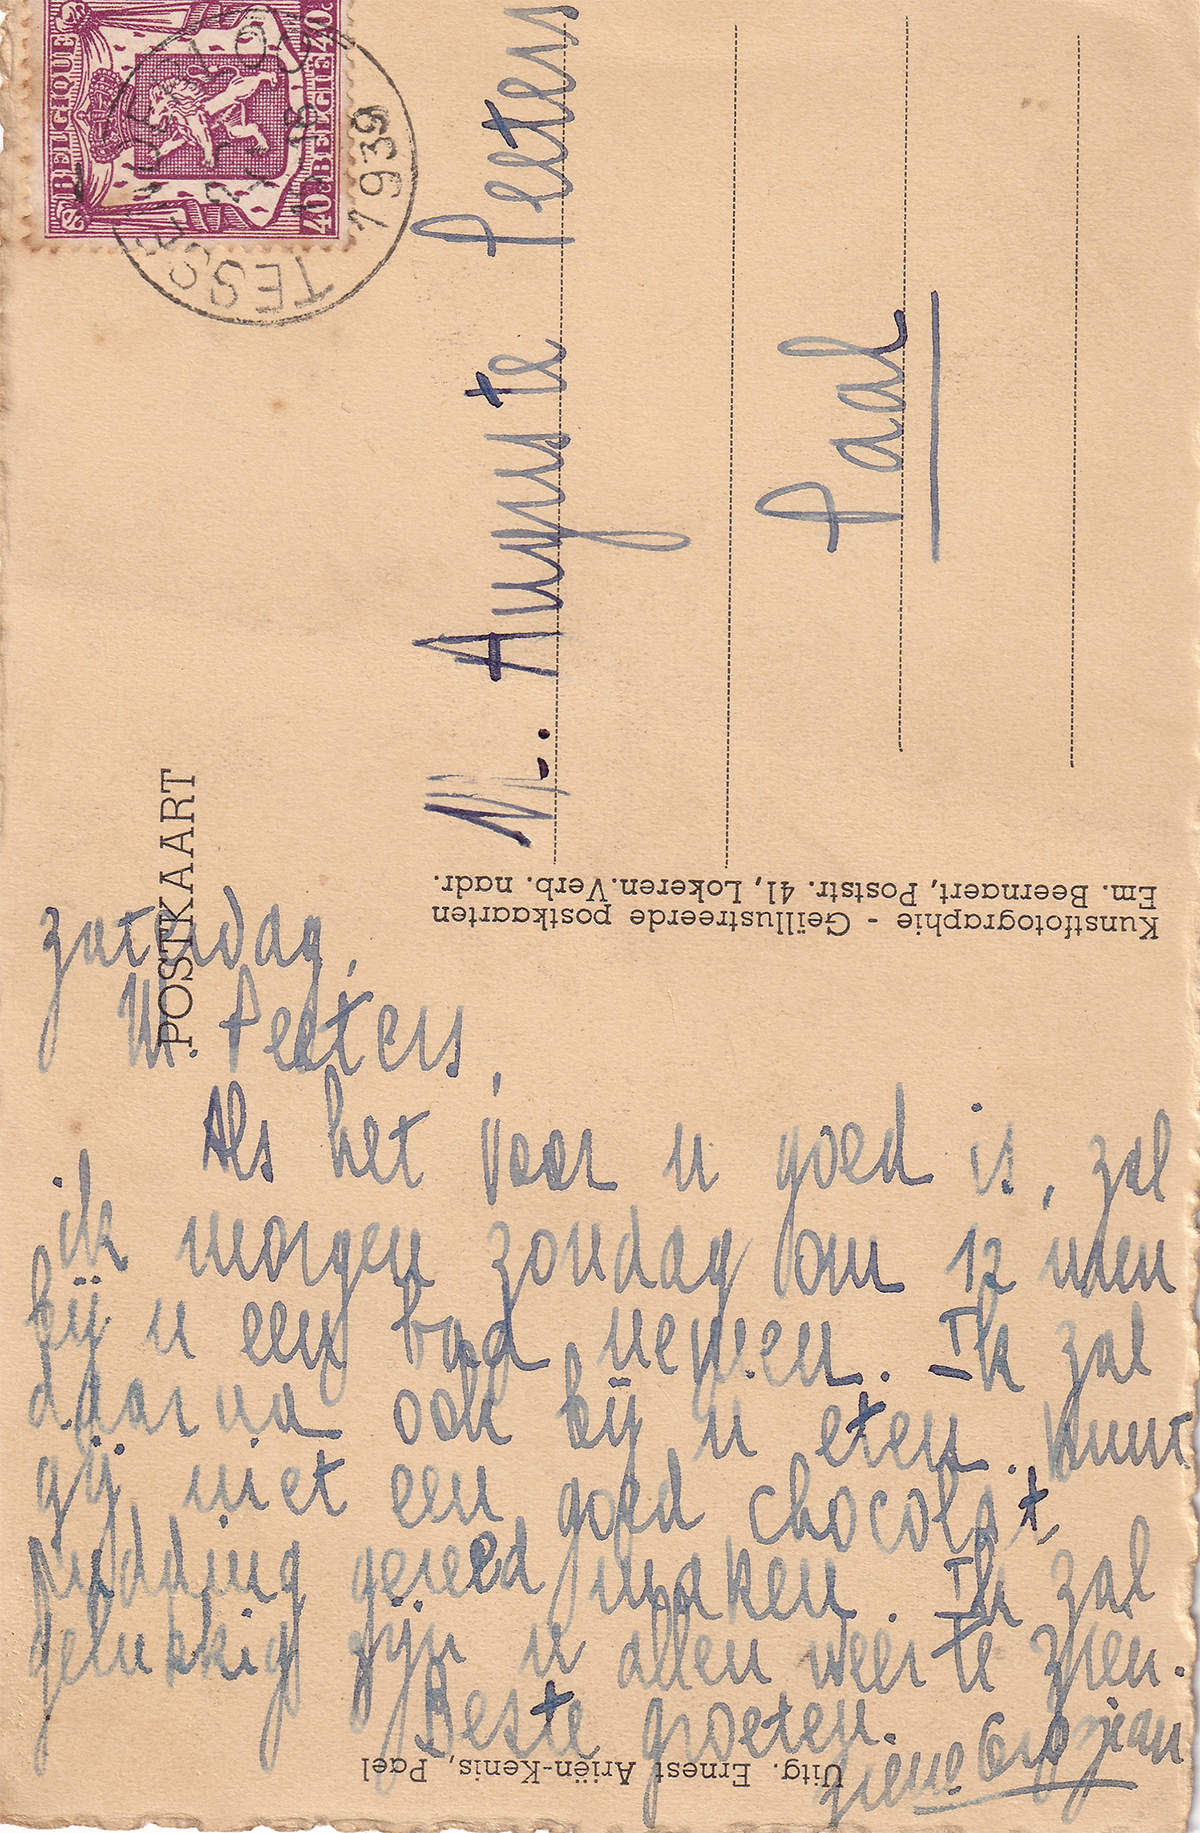 BELGIQUE
BELGIE
40c 40c
TESSENDERLOO
1939
POSTKAART
M. Auguste Peeters
Paal
Kunstfotographie - Geïllustreerde postkaarten
Em. Beernaert, Poststr. 41, Lokeren. Verb. nadr.
zaterdag,
M. Peeters,
Als het voor u goed is, zal
ik morgen zondag om 12 uren
bij u een bad nemen. Ik zal
daarna ook bij u eten. kunt
gij niet een goed chocolat
pudding gereed maken. Ik zal
gelukkig zijn u allen weer te zien.
Beste groeten.
jean
Uitg. Ernest Ariën-Kenis, Pael